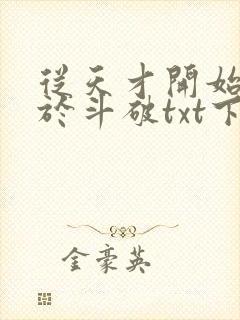 從天才開始
於斗破txt下
金豪英